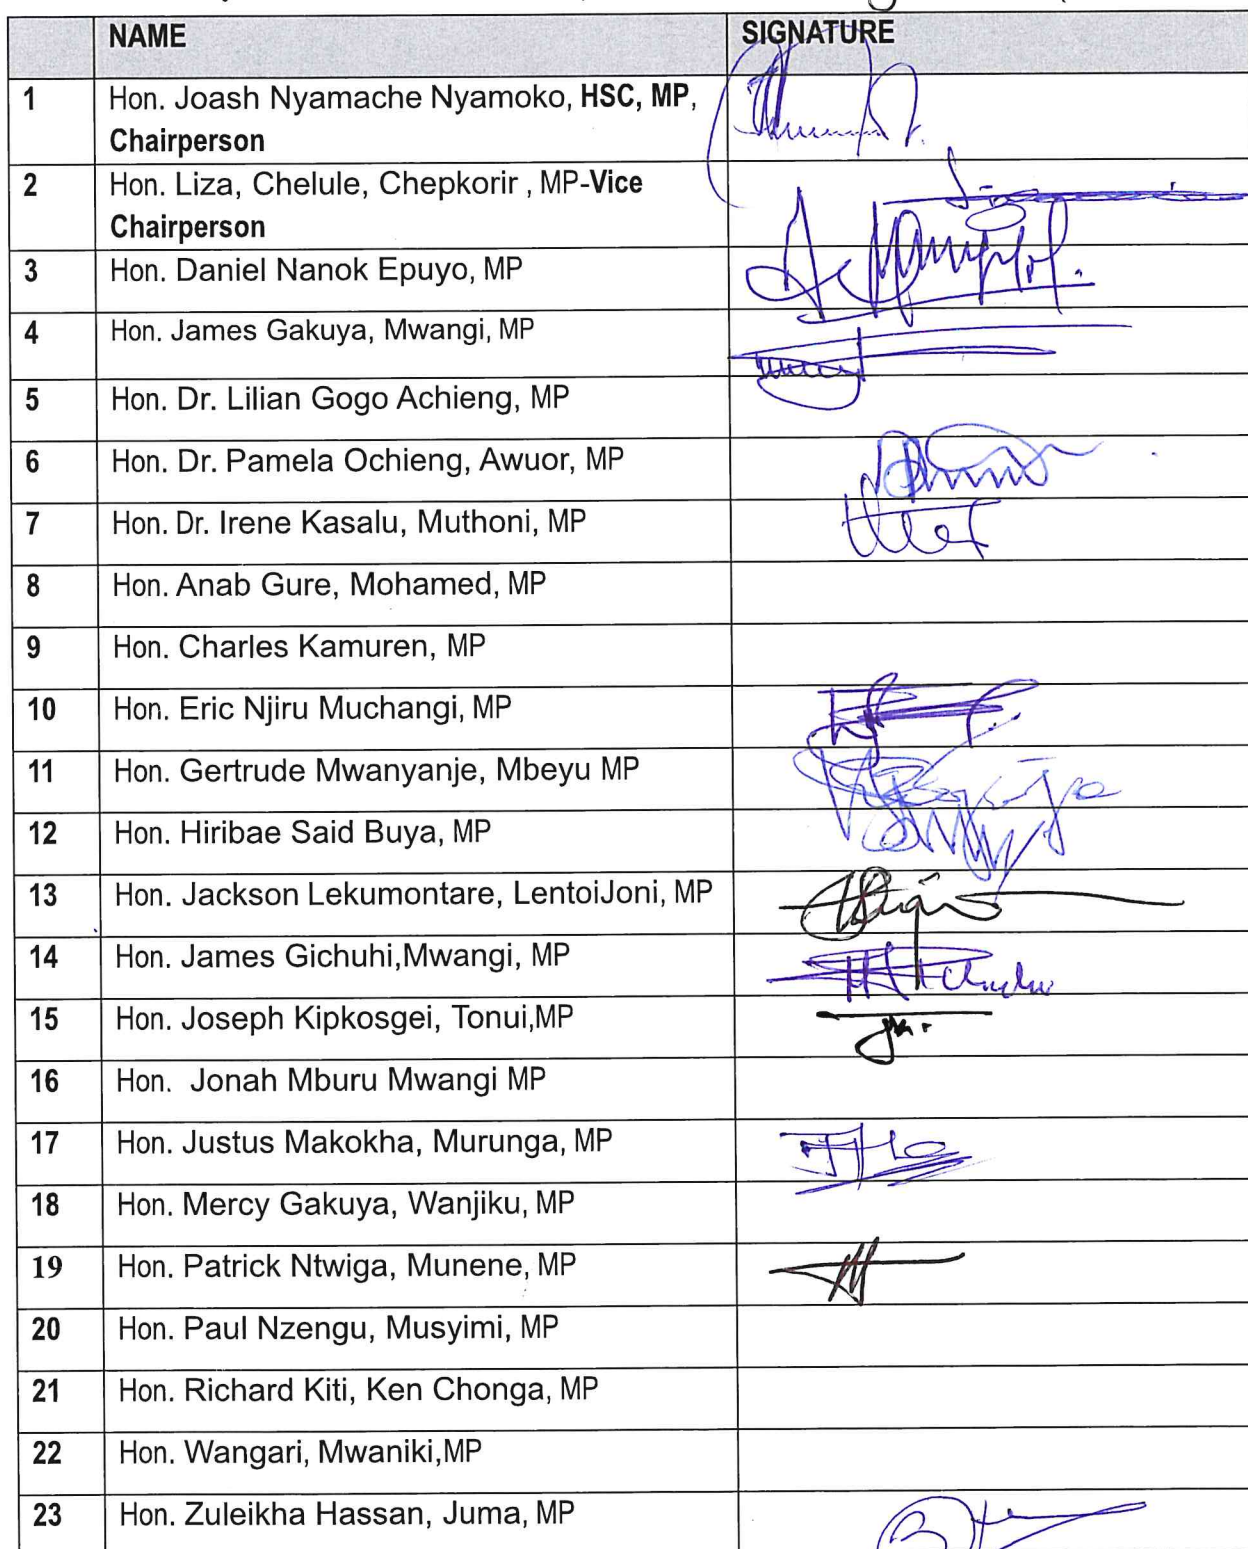 NAME SIGNATURE
1 Hon. Joash Nyamache Nyamoko, HSC, MP,
Chairperson
2 Hon. Liza, Chelule, Chepkorir , MP-Vice
Chairperson
3 Hon. Daniel Nanok Epuyo, MP
4 Hon. James Gakuya, Mwangi, MP
5 Hon. Dr. Lilian Gogo Achieng, MP
6 Hon. Dr. Pamela Ochieng, Awuor, MP
7 Hon. Dr. Irene Kasalu, Muthoni, MP
8 Hon. Anab Gure, Mohamed, MP
9 Hon. Charles Kamuren, MP
10 Hon. Eric Njiru Muchangi, MP
11 Hon. Gertrude Mwanyanje, Mbeyu MP
12 Hon. Hiribae Said Buya, MP
13 Hon. Jackson Lekumontare, LentoiJoni, MP
14 Hon. James Gichuhi,Mwangi, MP
15 Hon. Joseph Kipkosgei, Tonui,MP
16 Hon. Jonah Mburu Mwangi MP
17 Hon. Justus Makokha, Murunga, MP
18 Hon. Mercy Gakuya, Wanjiku, MP
19 Hon. Patrick Ntwiga, Munene, MP
20 Hon. Paul Nzengu, Musyimi, MP
21 Hon. Richard Kiti, Ken Chonga, MP
22 Hon. Wangari, Mwaniki,MP
23 Hon. Zuleikha Hassan, Juma, MP